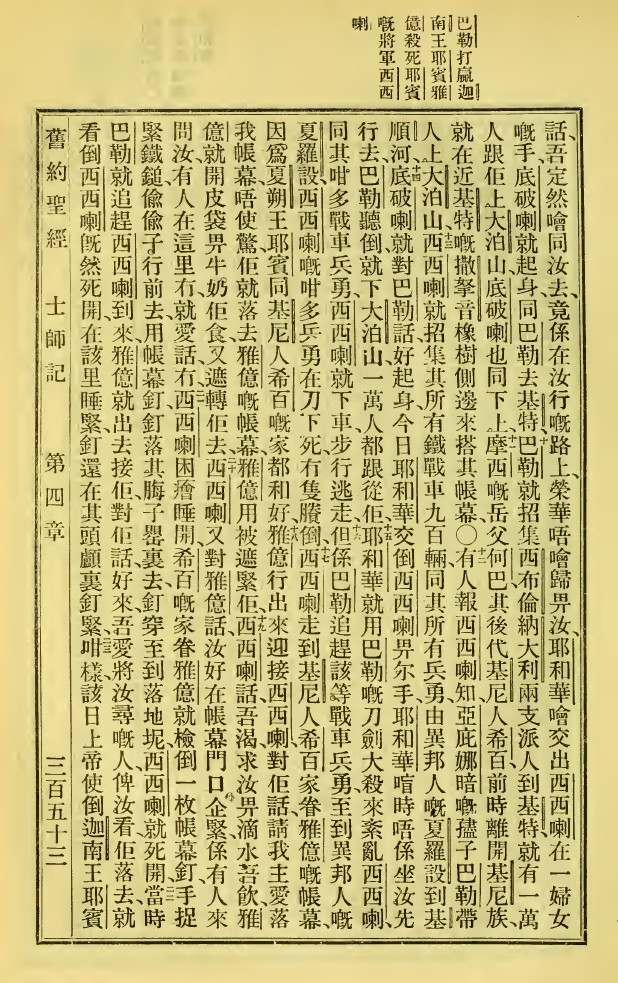 巴勒打贏迦
南王耶賓雅
億殺死耶賓
嘅將軍西西
喇
話、吾定然噲同汝去、竟係在汝行嘅路上、榮華唔噲歸畀汝、耶和華噲交出西西喇在一婦女
嘅手、底破喇就起身、同巴勒去基特、十巴勒就招集西布倫納大利兩支派人到基特、就有一萬
人跟佢上大泊山、底破喇也同下上、十一摩西嘅岳父何巴其後代基尼人希百前時離開基尼族、
就在近基特嘅撒拏音橡樹側邊來搭其帳幕、〇十二有人報西西喇知亞庇娜暗嘅㜽子巴勒帶
人上大泊山、十三西西喇就招集其所有鐵戰車九百輛、同其所有兵勇、由異邦人嘅夏羅設到基
順河、十四底破喇就對巴勒話、好起身、今日耶和華交倒西西喇畀尔手、耶和華喧時唔係坐汝先
行去、巴勒聽倒就下大泊山、一萬人都跟從佢、十五耶和華就用巴勒嘅刀劍大殺來紊亂西西喇、
同其咁多戰車兵勇、西西喇就下車步行逃走、十六但係巴勒追趕該等戰車兵勇、至到異邦人嘅
夏羅設、西西喇嘅咁多兵勇在刀下死、冇隻賸倒、十七西西喇走到基尼人希百家眷雅億嘅帳幕、
因爲夏朔王耶賓同基尼人希百嘅家都和好、十八雅億行出來迎接西西喇、對佢話、請我主愛落
我帳幕、唔使驚、佢就落去雅億嘅帳幕、雅億用被遮緊佢、十九西西喇話、吾渴、求汝畀滴水吾飲、雅
億就開皮袋畀牛奶佢食、又遮轉佢去、二十西西喇又對雅億話、汝好在帳幕門口企緊、係有人來
問汝有人在這里冇、就愛話冇、二一西西喇困瘡睡開、希百嘅家眷雅億就檢倒一枚帳幕釘、手捉
緊鐵鎚、偸偸子行前去、用帳幕釘釘落其䏢子罌裏去、釘穿至到落地坭、西西喇就死開、二二當時
巴勒就追趕西西喇到來、雅億就出去接佢、對佢話、好來、吾愛將汝尋嘅人俾汝看、佢落去、就
看倒西西喇旣然死開、在該里睡緊、釘還在其頭顱裏釘緊、二三咁樣該日上帝使倒迦南王耶賓
舊約聖經　士師記　第四章　三百五十三